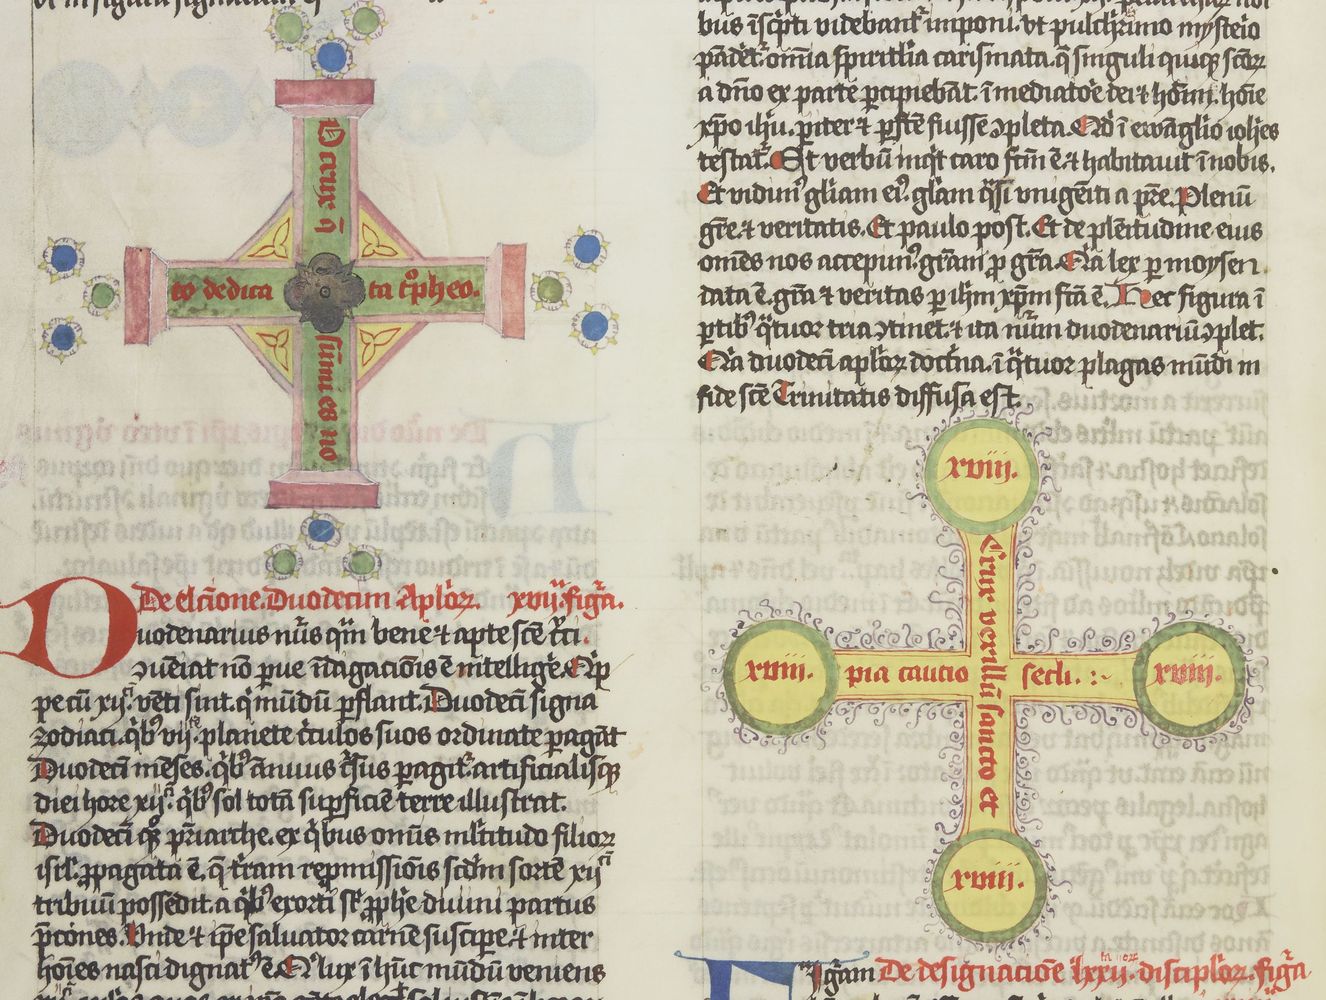 O crux q̄
to dedica
ta t'pheo.
sūmi es no
De elcīone. Duodecim Aplōrꝝ. xvij. figᷓa.
Duodenarius nūs qm̄ bene ⁊ apte scē
uēiat nō pᵉue īdagaciōis ē intelligᵉe.
pecū xij. vēti sint. q̄ mūdū ꝑflant. Duodecī signa
zodiaci. q̄bꝫ vij. planete c̄culos suos ordinate ꝑagāt
Duodecī mēses. q̄bꝫ ānuus c̄sus ꝑagit᷑. artificialisqꝫ
diei hore xij. q̄bꝫ sol totā suꝑficiē terre illustrat.
Duodecī pr̄iarche. ex q̄bus omīs ml̄titudo filioꝝ
isrl. ꝓpagata ē. q̄ t̄ram repmissiōis scd̄m sortē xij
tribuū possedit. a q̄bꝫ exorti st̄ ꝓphe diuini partus
p̄cōnes. Vnde ⁊ ip̄e saluator carnē suscipe. ⁊ inter
hoīes nasci dignatꝰ ē. Q̄ lux ī hūc mūdū veniens
bus īsc̄pti videbant᷑ imponi. vt pulcḣrimo mysterio
pādet᷑. om̄ia spirit̄lia carismata. q̄ singuli quiqꝫ scōꝝ
a dn̄o ex parte ꝑcipiebāt. ī mediatōe dei ⁊ hōim. hoīe
xp̄o ih̄u. pᵃiter ⁊ ꝑfc̄e fuisse ꝯpleta. Q̄d ī ewāglio ioh̄es
testat᷑. Et verbū inq̄t caro fc̄m ē. ⁊ habitauit ī nobis.
Et vidimꝰ gl̄iam eiꝰ. gl̄am q̄si vnigēiti a pr̄e. Plenū
gr̄e. ⁊ veritatis. Et paulo post. Et de plēitudine eius
om̄es nos accepimꝰ. gr̄am p gr̄a. Q̄a lex ꝑ moysen.
data ē. gr̄a ⁊ veritas ꝑ ih̄m xp̄m fc̄a ē. Hec figura ī
ꝑtibꝫ q̄tuor tria ꝯtinet. ⁊ ita nūm duodenariū ꝯplet.
Q̄a duodecī aplōꝝ doctīna. ī q̄tuor plagas mūdi in
fide scē Trinitatis diffusa est.
xviij.
Crux vexillū sancto et
xviij. pia cautio secli. xviij.
xviij.
igᷓam De designaciōe lxxij. disciplōꝝ. figᷓa